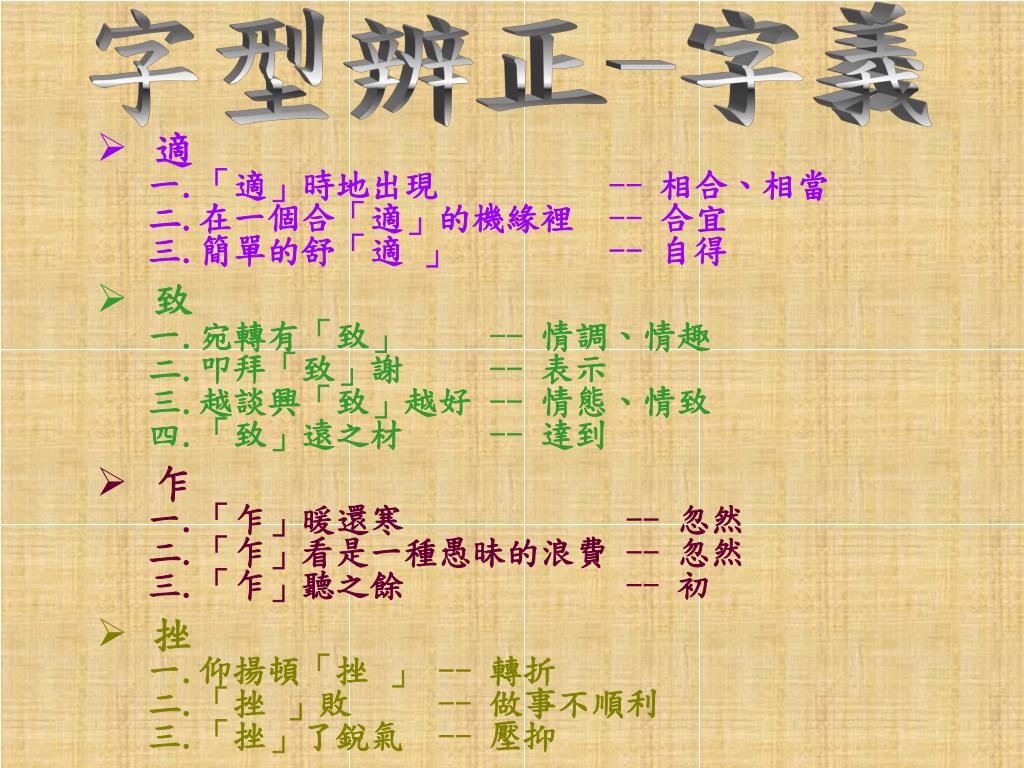 字型辨正-字義
適
一.「適」時地出現 -- 相合、相當
二.在一個合「適」的機緣裡 -- 合宜
三.簡單的舒「適 」 -- 自得
致
一.宛轉有「致」 -- 情調、情趣
二.叩拜「致」謝 -- 表示
三.越談興「致」越好 -- 情態、情致
四.「致」遠之材 -- 達到
乍
一.「乍」暖還寒 -- 忽然
二.「乍」看是一種愚昧的浪費 -- 忽然
三.「乍」聽之餘 -- 初
挫
一.仰揚頓「挫 」 -- 轉折
二.「挫 」敗 -- 做事不順利
三.「挫」了銳氣 -- 壓抑